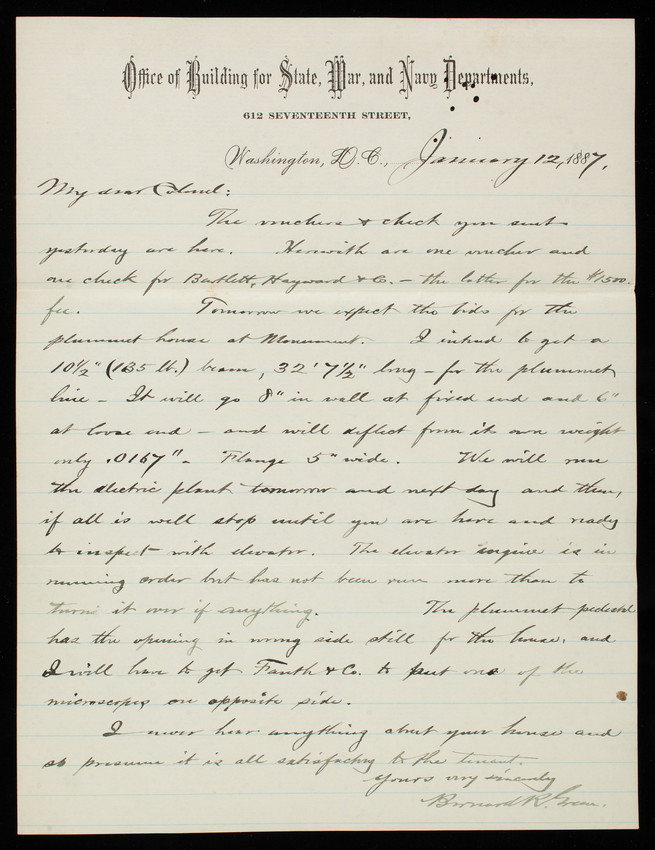 Office of Building for State, War, and Navy Departments,
612 SEVENTEENTH STREET,
Washington, D.C., January 12, 1887.
My dear Colonel:
The vouchers & check you sent
yesterday are here. Herewith are one voucher and
one check for Bartlett, Hayward & Co. – the latter for the $1500.
fee. Tomorrow we expect the bids for the
plummet house at Monument. I intend to get a
10½" (135 lb.) beam, 32' 7½" long – for the plummet
line – It will go 8" in wall at fixed end and 6"
at loose end – and will deflect from its own weight
only .0167" – Flange 5" wide. We will run
the electric plant tomorrow and next day and then,
if all is well stop until you are here and ready
to inspect with elevator. The elevator engine is in
running order but has not been run more than to
turn it over if anything. The plummet pedestal
has the opening in wrong side still for the house, and
I will have to get Fauth & Co. to put one of the
microscopes on opposite side.
I never hear anything about your house and
so presume it is all satisfactory to the tenant.
Yours very sincerely
Bernard R. Green.